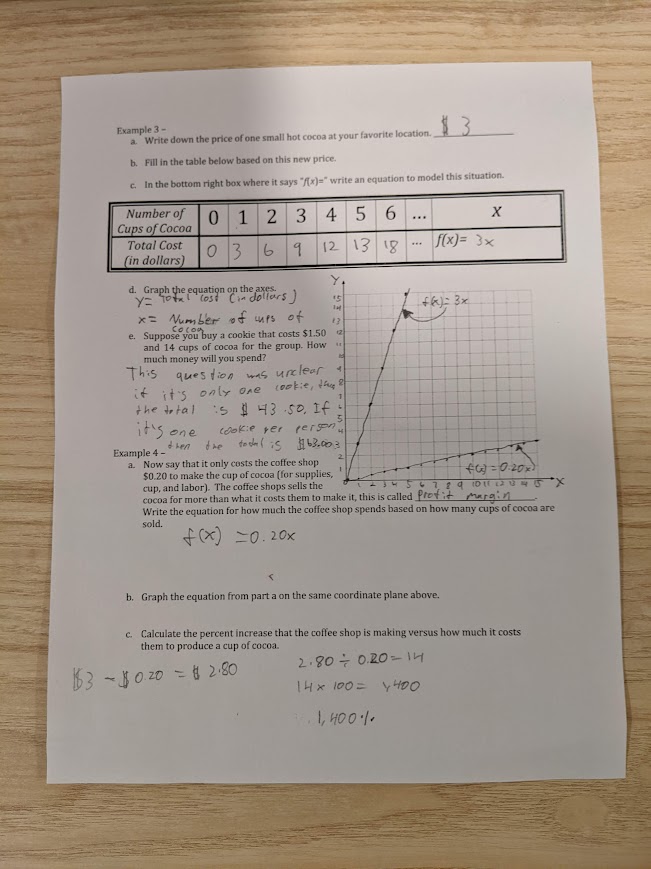 Example 3 –
a. Write down the price of one small hot cocoa at your favorite location. $ 3
b. Fill in the table below based on this new price.
c. In the bottom right box where it says "f(x)=" write an equation to model this situation.
Number of Cups of Cocoa 0 1 2 3 4 5 6 ... X
Total Cost (in dollars) 0 3 6 9 12 13 18 ... f(x)= 3x
d. Graph the equation on the axes.
y= Total cost (in dollars)
x= Number of cups of
cocoa
e. Suppose you buy a cookie that costs $1.50
and 14 cups of cocoa for the group. How
much money will you spend?
This question was unclear
if it's only one cookie, then
the total is $ 43.50. If
it's one cookie per person
then the total is $63.00
Y
15
14
13
12
11
10
9
8
7
6
5
4
3
2
1
0 1 2 3 4 5 6 7 8 9 10 11 12 13 14 15 X
f(x)= 3x
f(x)=0.20x
Example 4 –
a. Now say that it only costs the coffee shop
$0.20 to make the cup of cocoa (for supplies,
cup, and labor). The coffee shops sells the
cocoa for more than what it costs them to make it, this is called profit margin.
Write the equation for how much the coffee shop spends based on how many cups of cocoa are
sold.
f(x) =0.20x
b. Graph the equation from part a on the same coordinate plane above.
c. Calculate the percent increase that the coffee shop is making versus how much it costs
them to produce a cup of cocoa.
$3 - $0.20 = $ 2.80
2.80 ÷ 0.20=14
14 x 100= 1400
1,400%